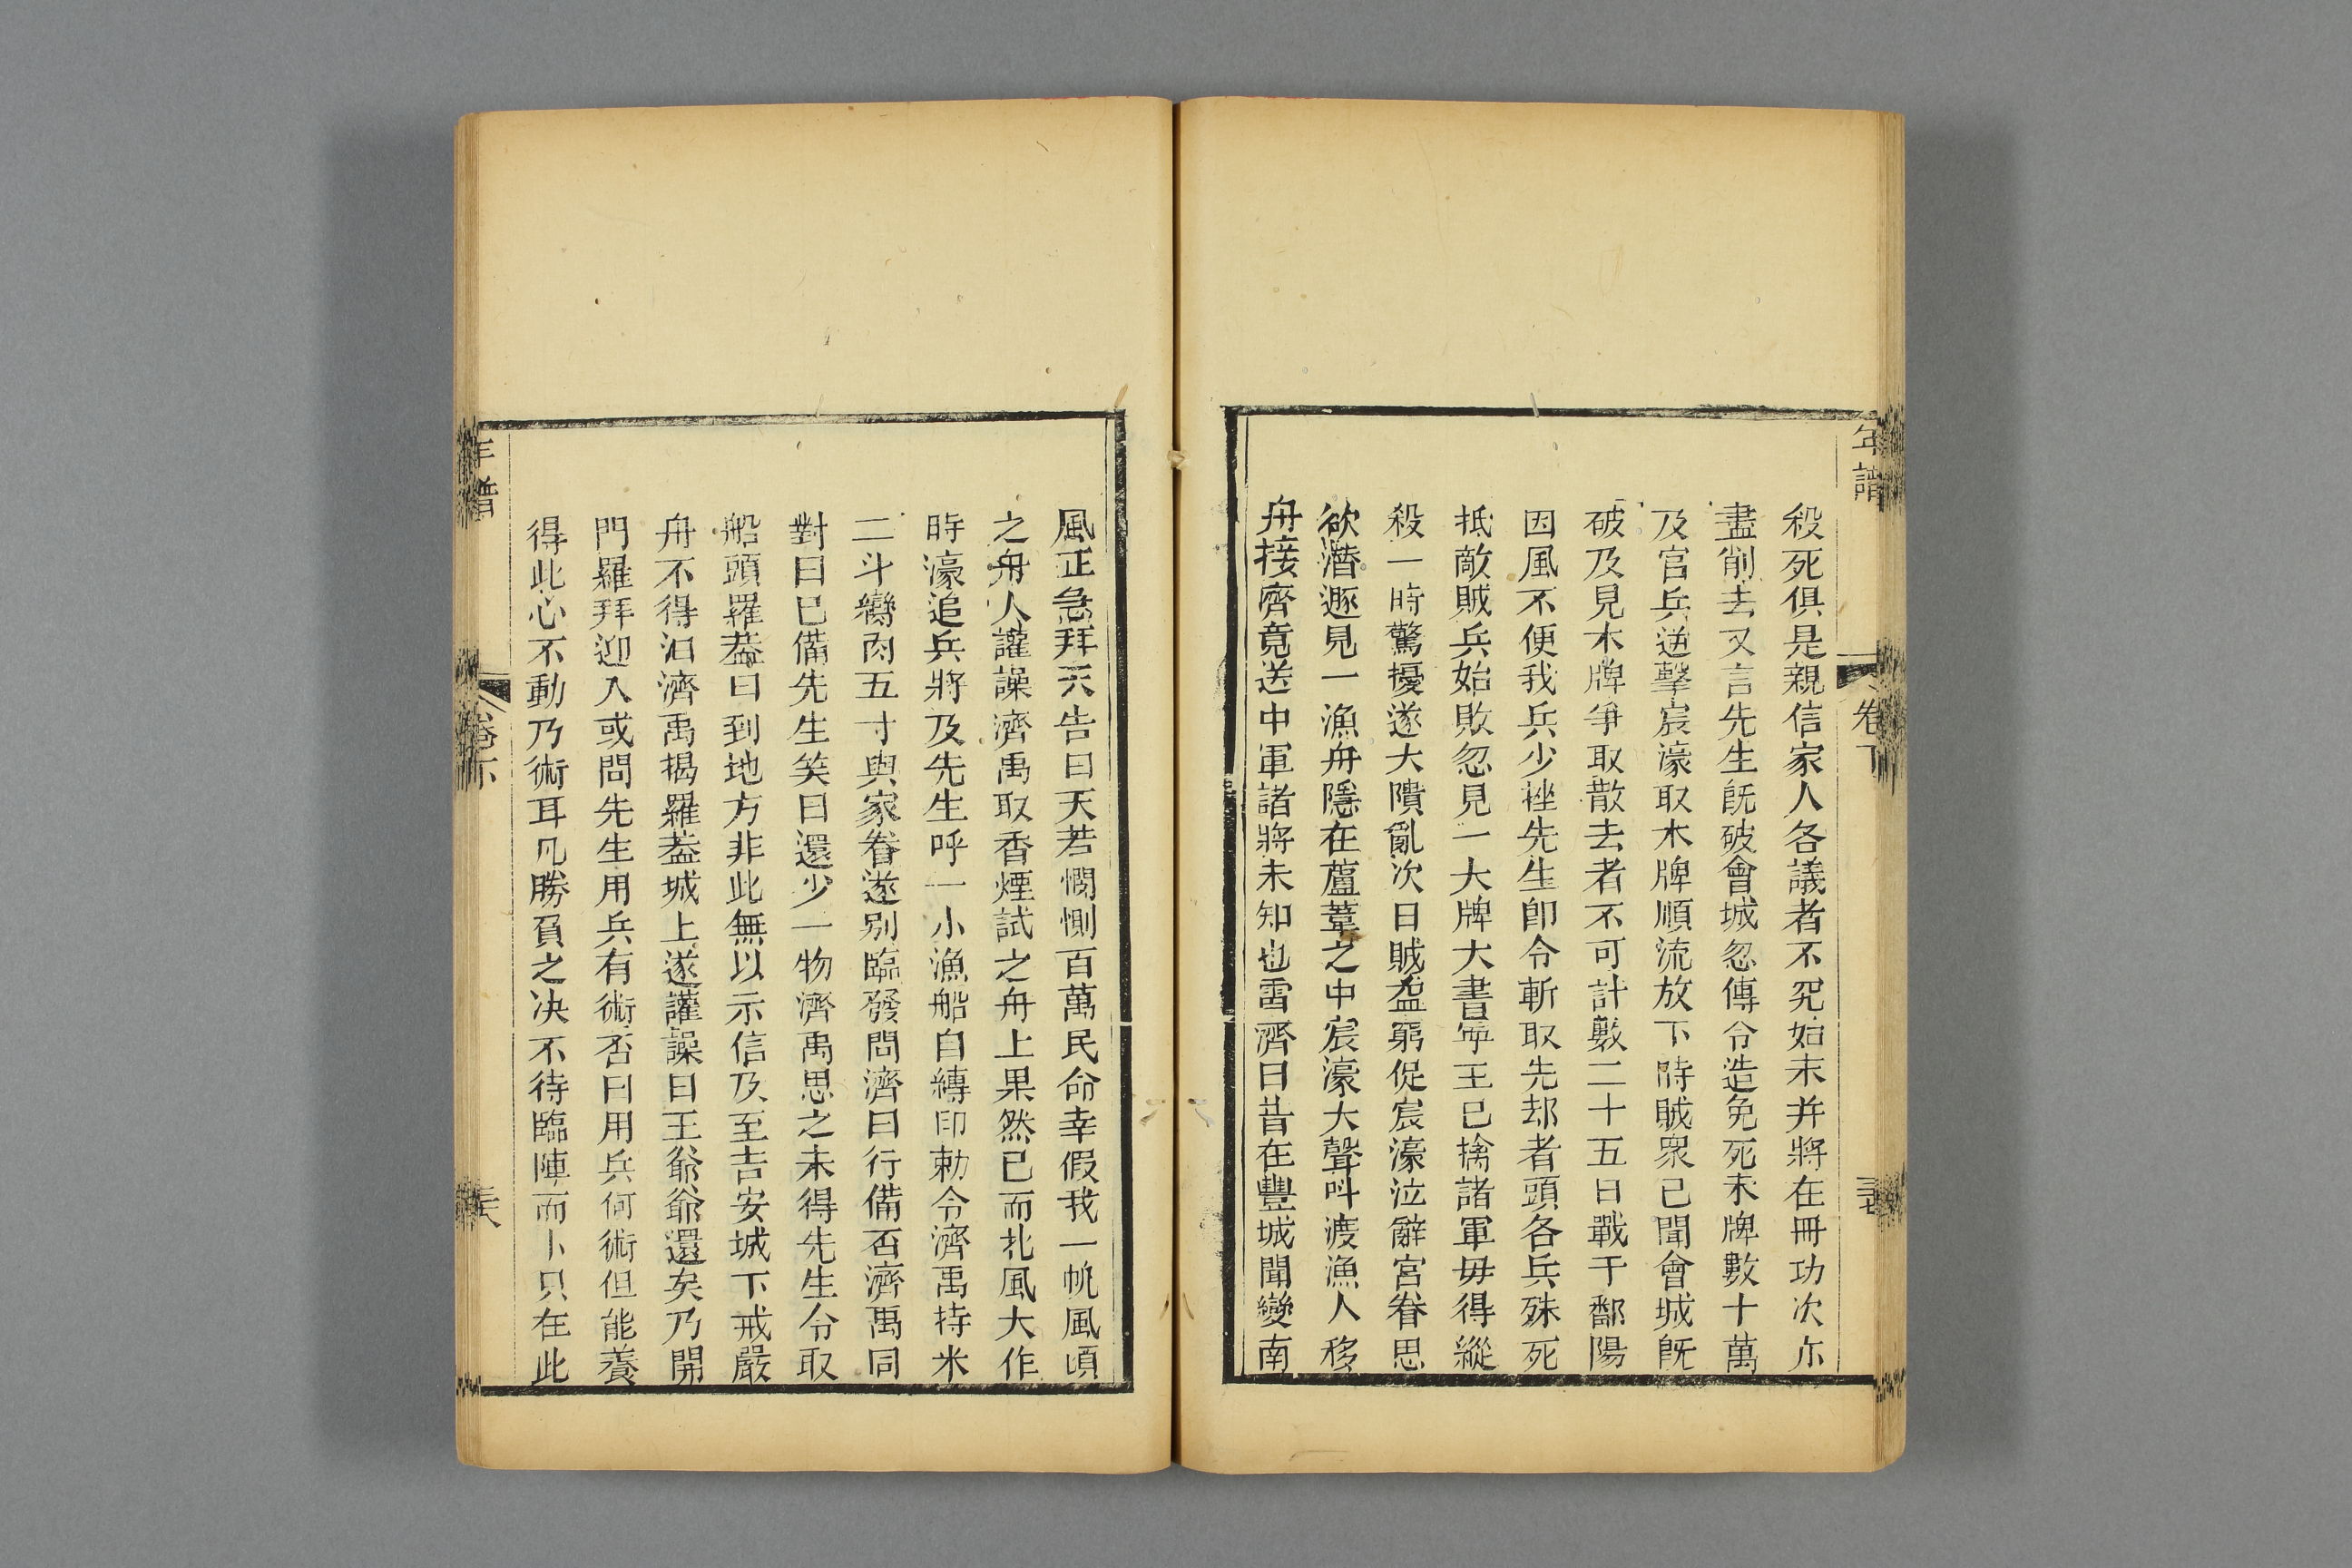 年譜 卷下
殺死俱是親信家人各議者不究始末并將在冊功次亦
盡削去又言先生旣破會城忽傳令造免死木牌數十萬
及官兵逆擊宸濠取木牌順流放下時賊衆已聞會城旣
破及見木牌爭取散去者不可計數二十五日戰于鄱陽
因風不便我兵少挫先生卽令斬取先却者頭各兵殊死
抵敵賊兵始敗忽見一大牌大書寧王已擒諸軍毋得縱
殺一時驚擾遂大潰亂次日賊益窮促宸濠泣辭宮眷思
欲潛遯見一漁舟隱在蘆葦之中宸濠大聲呌渡漁人移
舟接濟竟送中軍諸將未知也雷濟曰昔在豐城聞變南
風正急拜天告曰天若憫惻百萬民命幸假我一帆風頃
之舟人讙譟濟禹取香煙試之舟上果然已而北風大作
時濠追兵將及先生呼一小漁船自縛印勅令濟禹持米
二斗臠肉五寸與家眷遂别臨發問濟曰行備否濟禹同
對曰已備先生笑曰還少一物濟禹思之未得先生令取
船頭羅葢曰到地方非此無以示信及至吉安城下戒嚴
舟不得泊濟禹揭羅葢城上遂讙譟曰王爺爺還矣乃開
門羅拜迎入或問先生用兵有術否曰用兵何術但能養
得此心不動乃術耳凡勝負之决不待臨陣而卜只在此
年譜 卷下